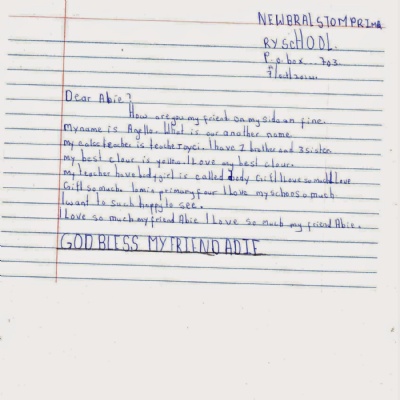 NEWBRALSTOMPRIMA
RY SCHOOL.
P.o.box...703
Dear Abie?
How are you my friend on my sida an fine.
My name is Agello. What is our another name
my colse teacher is teache Joyci. I have 1 brother and 3 sister
my best clour is yellho. I Love my best clour.
my teacher have body girl is called Jody Girl I Love so much Love
Girl so much. Iam in primary four I Love my school so much
I want to such happy to see.
I Love so much my friend Abie I Love so much my friend Abie.
GOD BLESS MY FRIEND ADIE